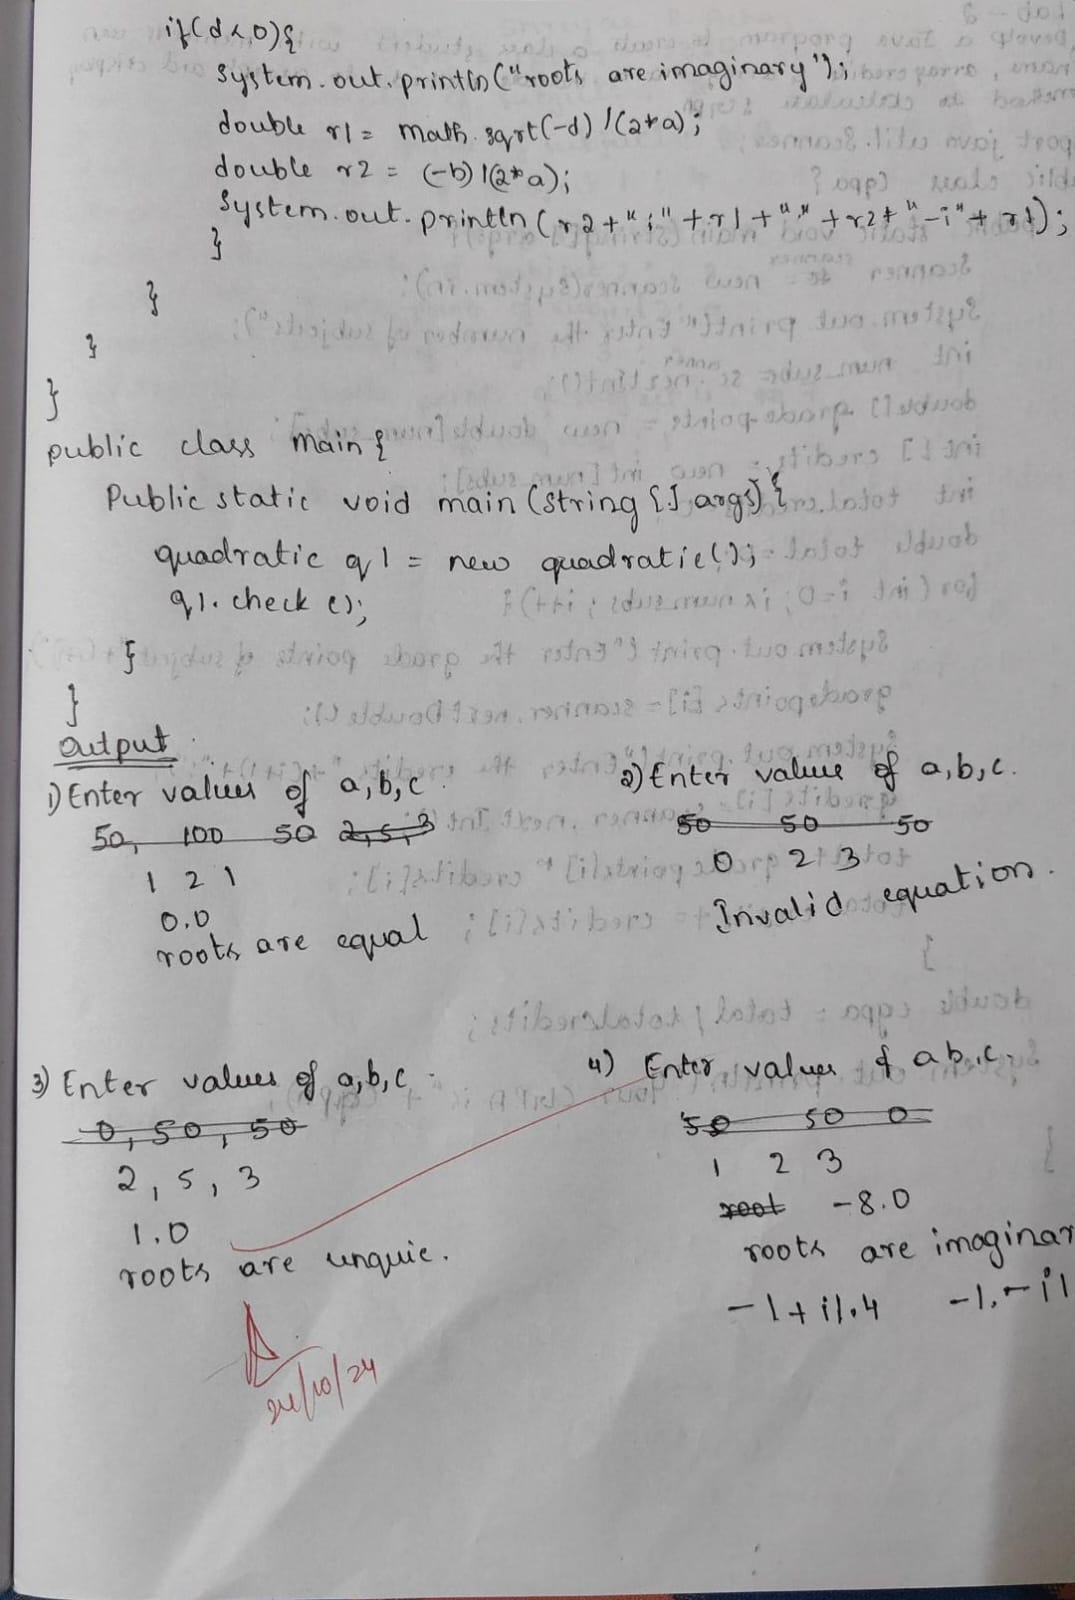 if(d<0){
System.out.println("roots are imaginary");
double r1 = math.sqrt(-d)/(2*a);
double r2 = (-b)/(2*a);
System.out.println(r2+"i"+r1+"," +r2+"-i"+r1);
}
}
}
}
public class main{
Public static void main(string[] args){
quadratic q1 = new quadratic();
q1.check();
}
}
Output
1) Enter values of a,b,c.
50, 100 50 2,5,3
1 2 1
0.0
roots are equal
2) Enter value of a,b,c.
50 50 50
0 2 3
Invalid equation.
3) Enter values of a,b,c.
0, 50, 50
2, 5, 3
1.0
roots are unquie.
4) Enter values of a b,c.
50 50 0
1 2 3
root -8.0
roots are imaginar
-1+i1.4 -1.-i1
24/10/24